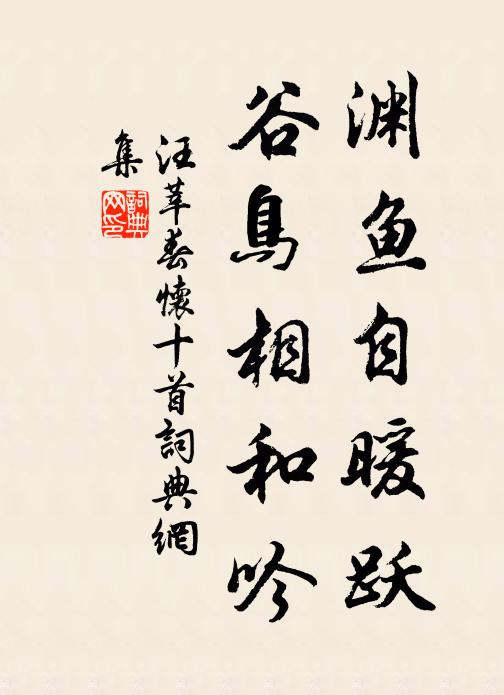 渊鱼自暖跃
谷鸟相和吟
汪莘春懷十首詞典網
集
詞典
网印